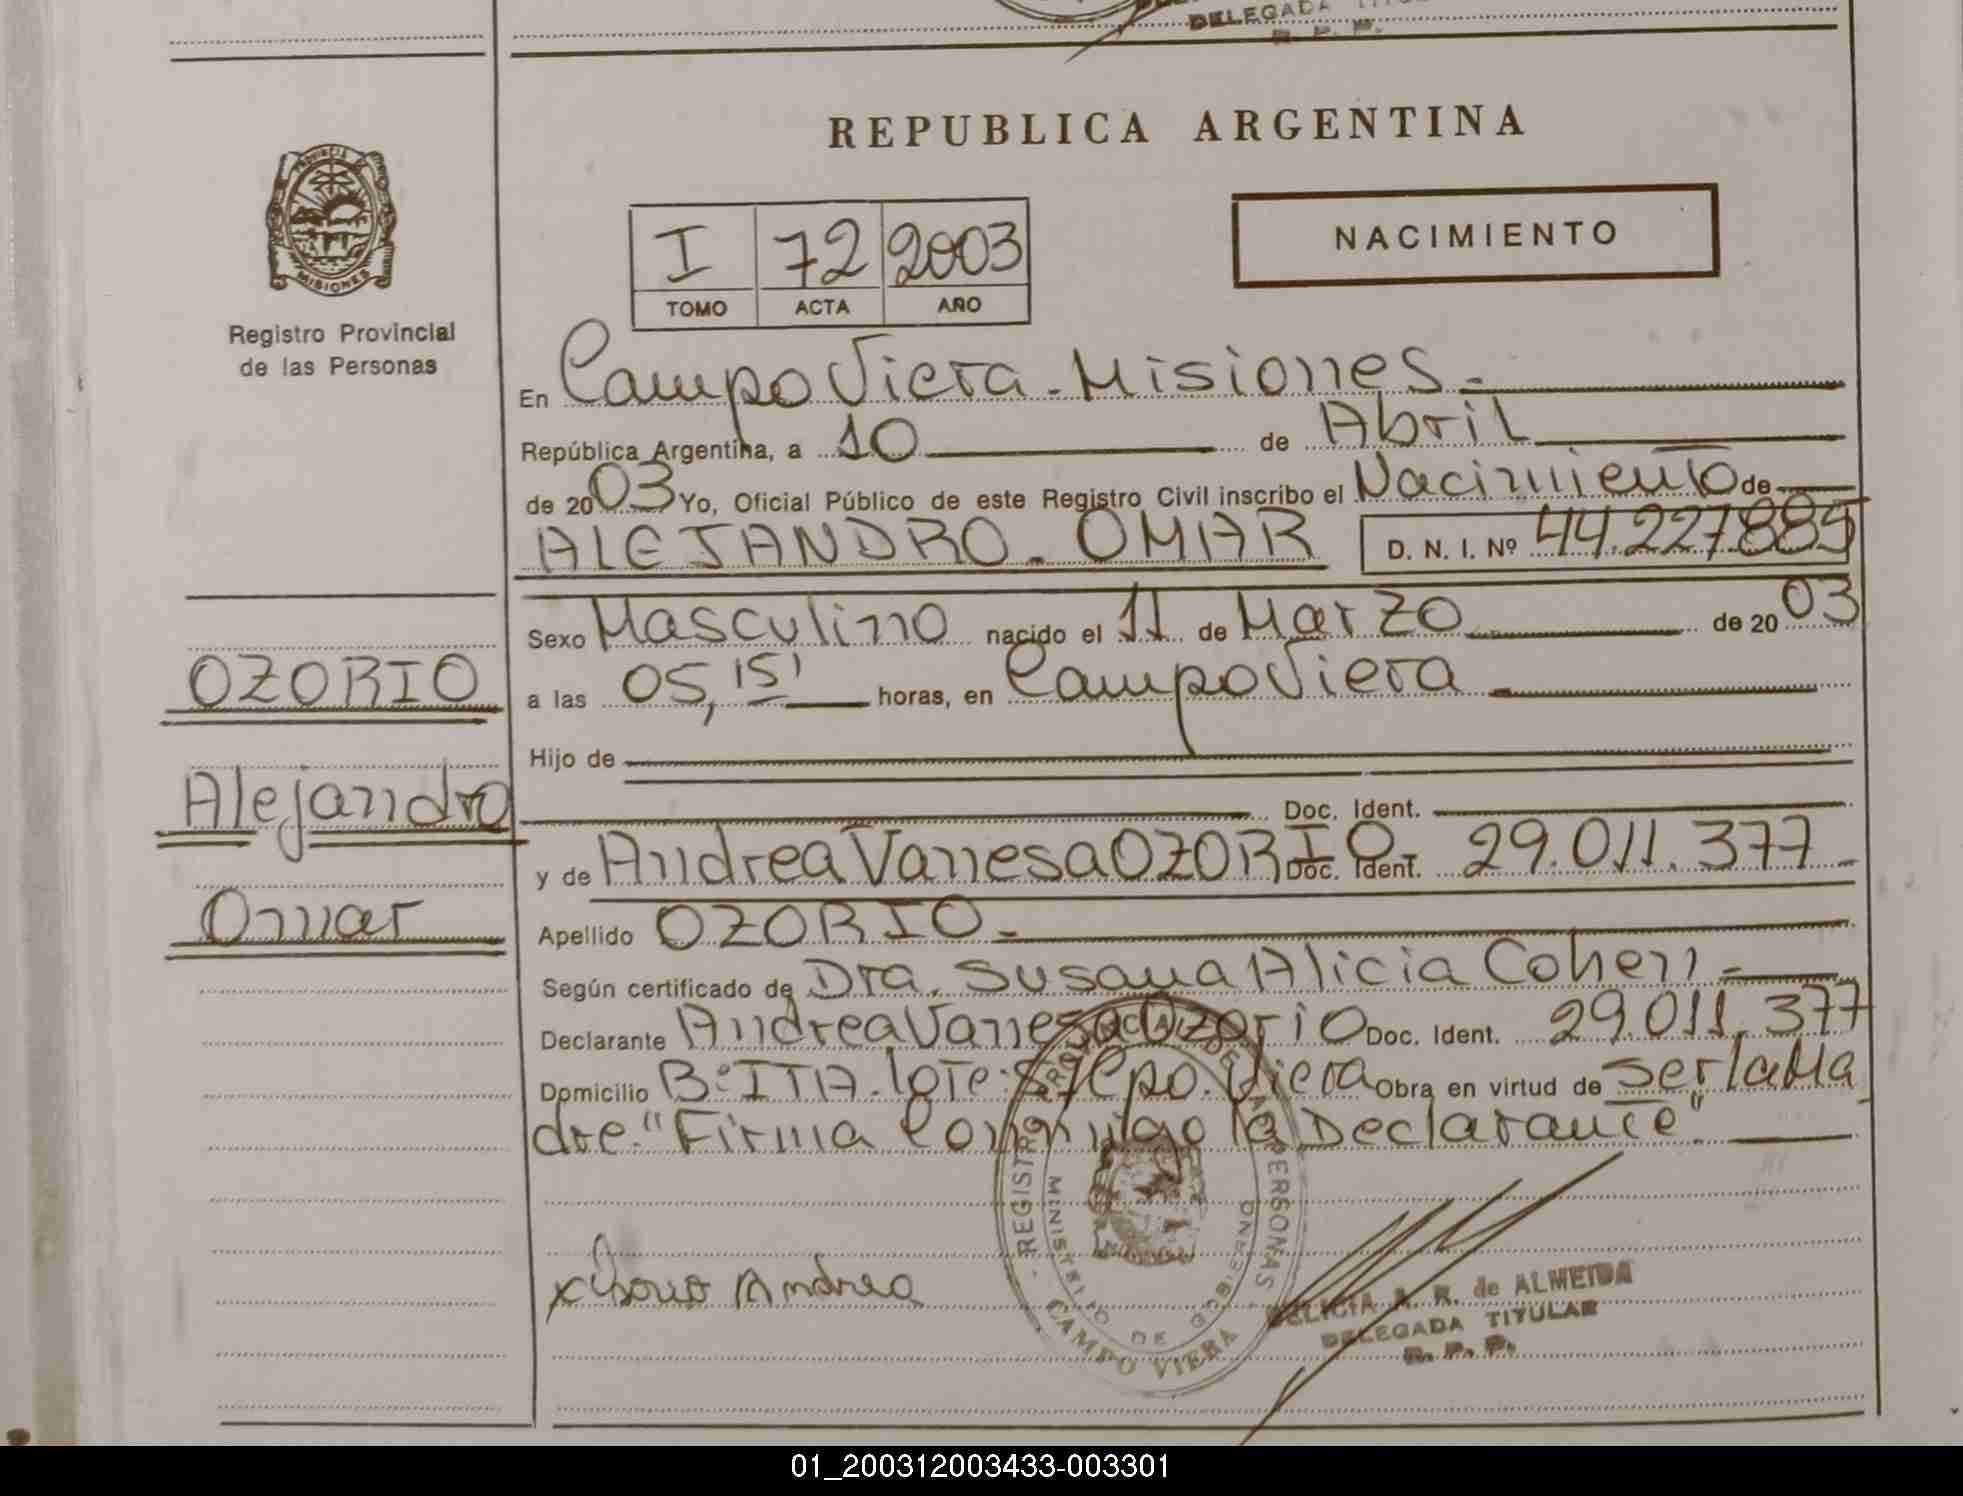 DELEGADA TITU
R. P. P.
REPUBLICA ARGENTINA
PROVINCIA
MISIONES
Registro Provincial
de las Personas
I 72 2003
TOMO ACTA AÑO
NACIMIENTO
En Campo Viera - Misiones -
República Argentina, a 10 de Abril
de 2003 Yo, Oficial Público de este Registro Civil inscribo el Nacimiento de
ALEJANDRO - OMAR D. N. I. Nº 44.227.885
Sexo Masculino nacido el 11 de Marzo de 2003
a las 05,15' horas, en Campo Viera
Hijo de
Doc. Ident.
y de Andrea Vanesa OZORIO- Doc. Ident. 29.011.377-
Apellido OZORIO-
Según certificado de Dra. Susana Alicia Cohen -
Declarante Andrea Vanesa Ozorio Doc. Ident. 29.011.377
Domicilio Bº: ITA-lote: Cpo. Viera Obra en virtud de ser la Ma
dre-"Firma Conmigo la Declarante".
OZORIO
Alejandro
Omar
x Ozorio Andrea
REGISTRO PROVINCIAL DE LAS PERSONAS
MINISTERIO DE GOBIERNO
CAMPO VIERA
DELICIA A. R. de ALMEIDA
DELEGADA TITULAR
R. P. P.
01_200312003433-003301